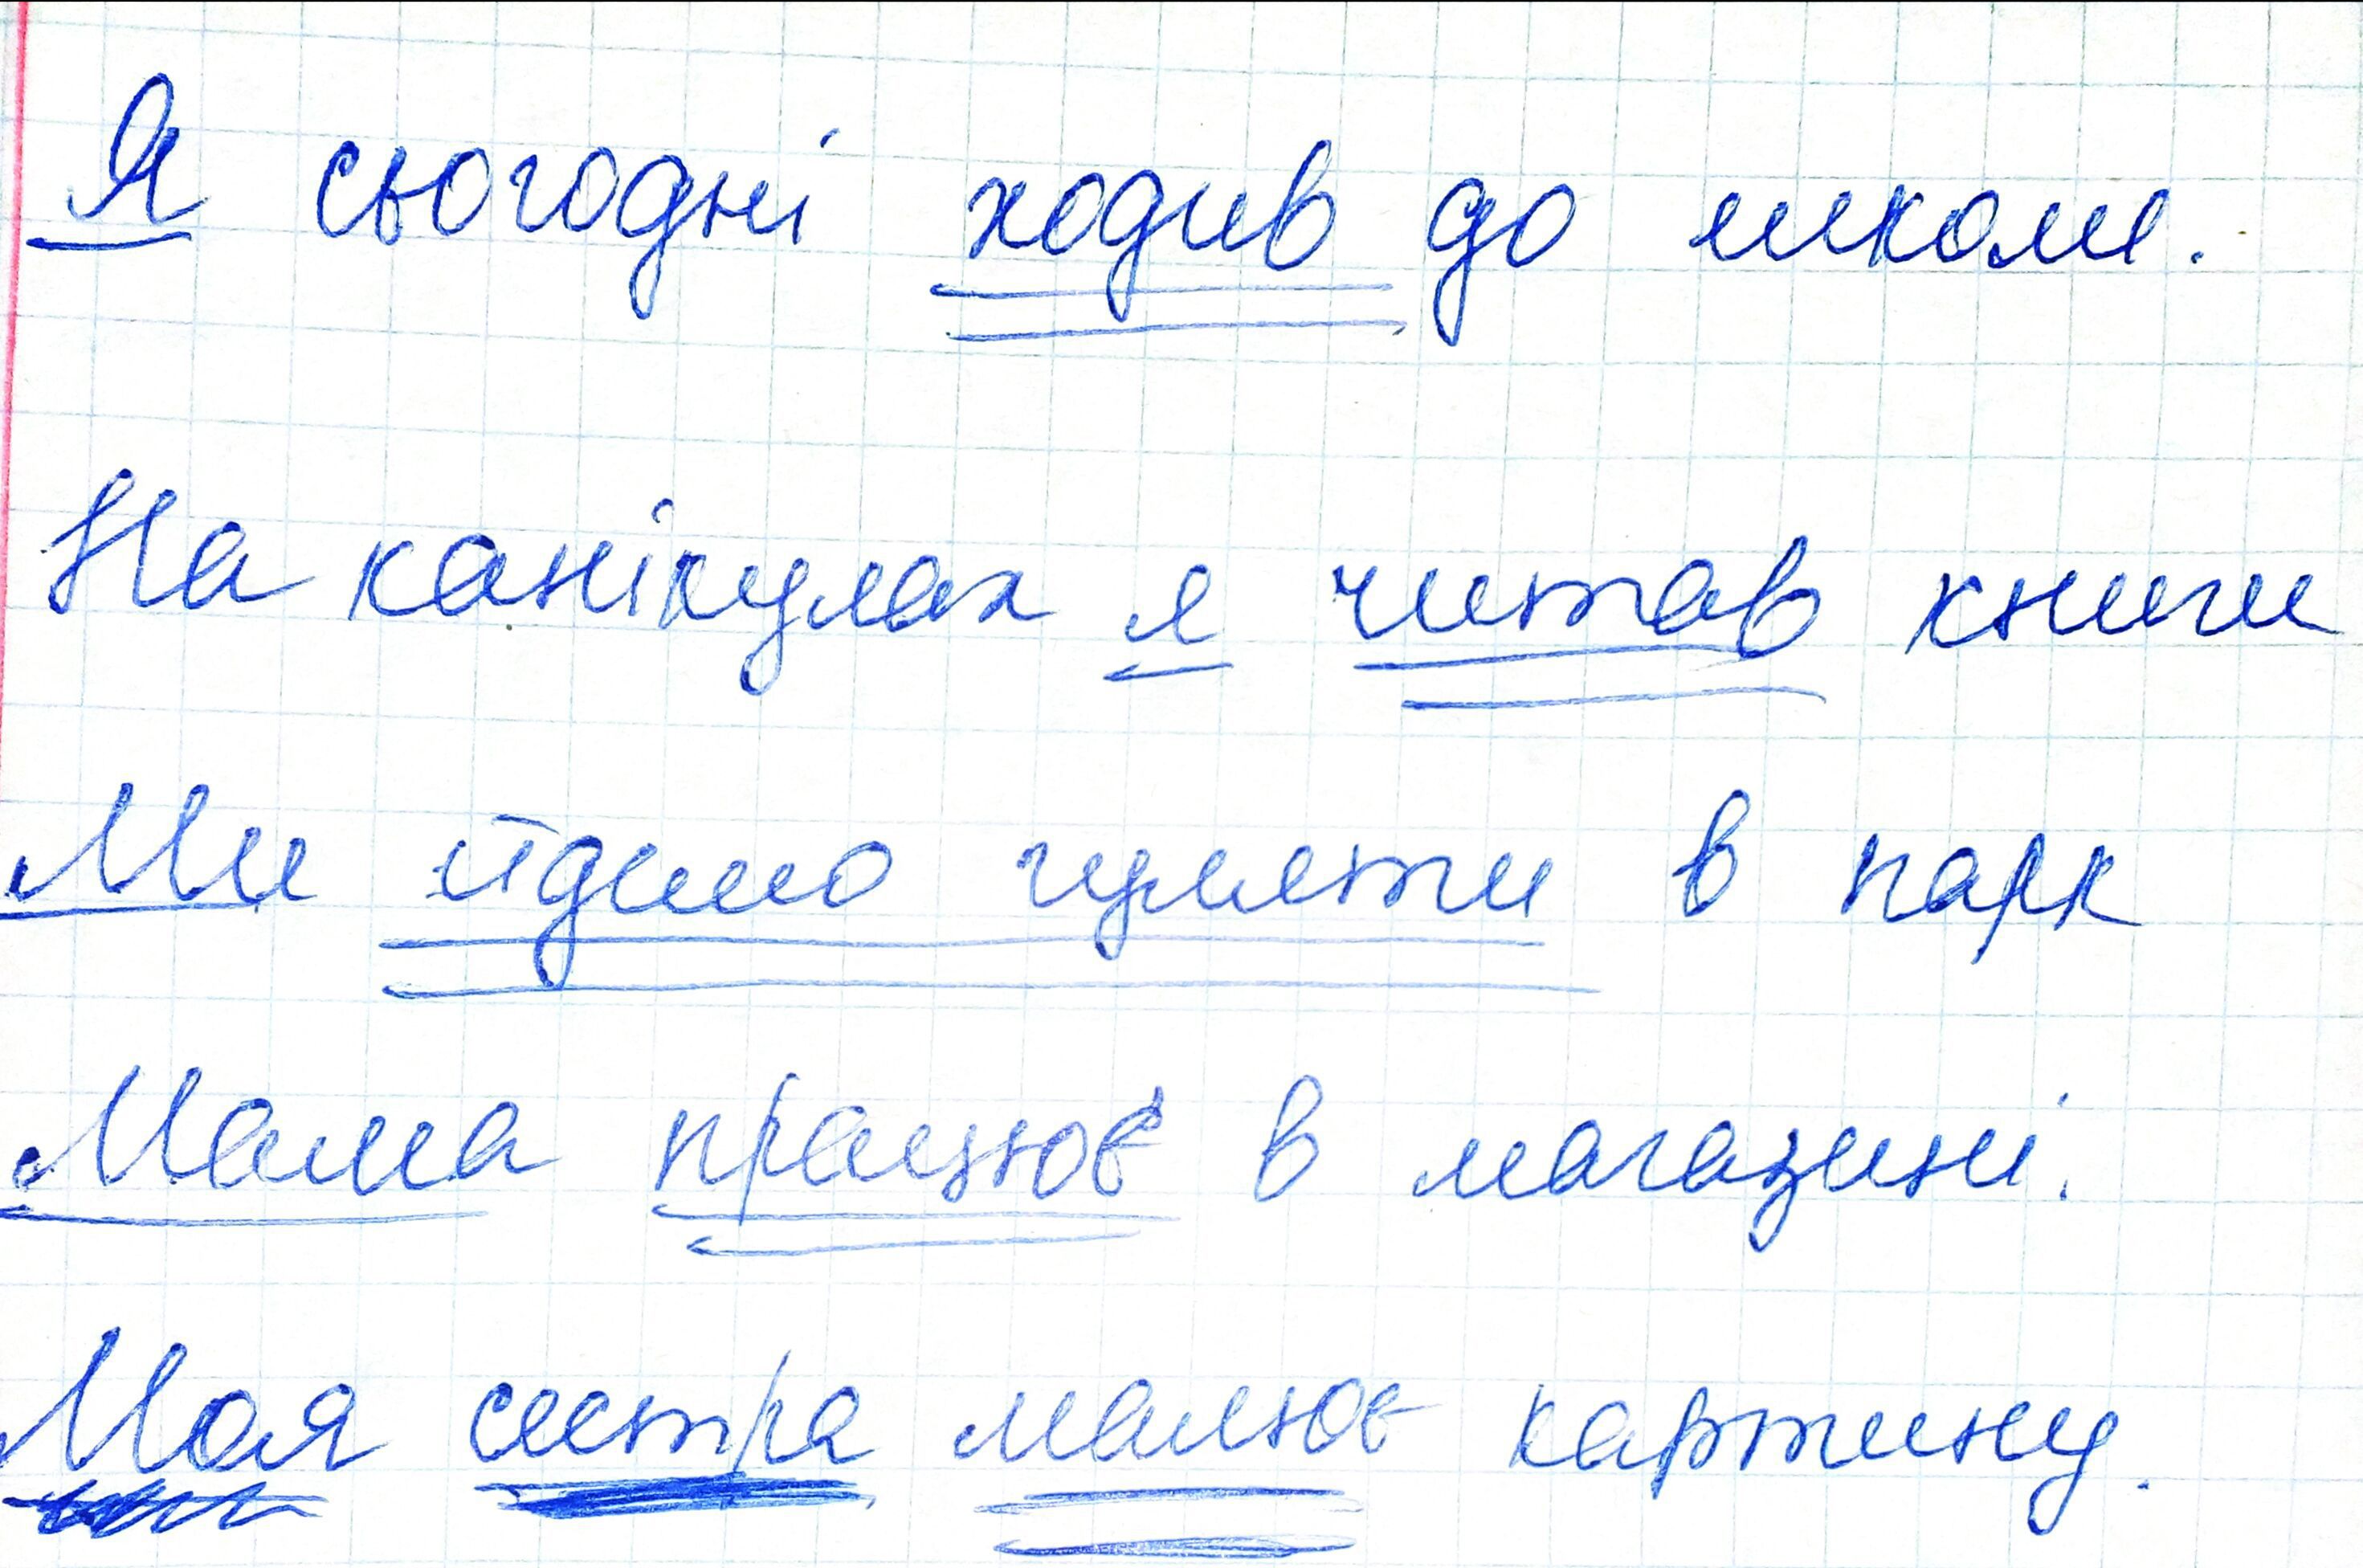 Я сьогодні ходив до школи.
На канікулах я читав книги
Ми йдемо гуляти в парк
Мама працює в магазині.
Моя сестра малює картину.